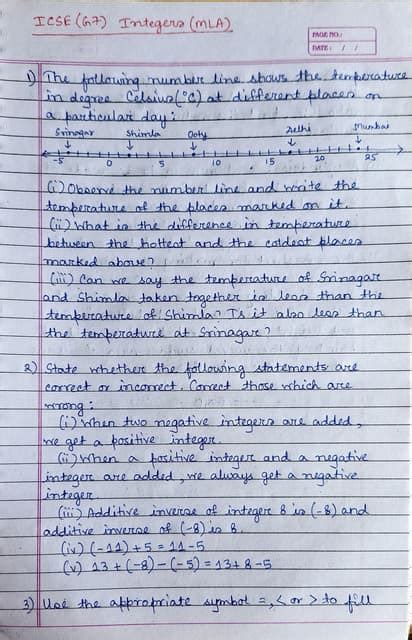 ICSE (G7) Integers (MLA)
PAGE NO.:
DATE: / /
1) The following number line shows the temperature
in degree Celsius (°C) at different places on
a particular day:
Srinagar Shimla Ooty Delhi Mumbai
-5 0 5 10 15 20 25
(i) Observe the number line and write the
temperature of the places marked on it.
(ii) What is the difference in temperature
between the hottest and the coldest places
marked above?
(iii) Can we say the temperature of Srinagar
and Shimla taken together is less than the
temperature of Shimla? Is it also less than
the temperature at Srinagar?
2) State whether the following statements are
correct or incorrect. Correct those which are
wrong:
(i) When two negative integers are added,
we get a positive integer.
(ii) When a positive integer and a negative
integer are added, we always get a negative
integer.
(iii) Additive inverse of integer 8 is (-8) and
additive inverse of (-8) is 8.
(iv) (-11) + 5 = 11 - 5
(v) 13 + (-8) - (-5) = 13 + 8 - 5
3) Use the appropriate symbol =, < or > to fill